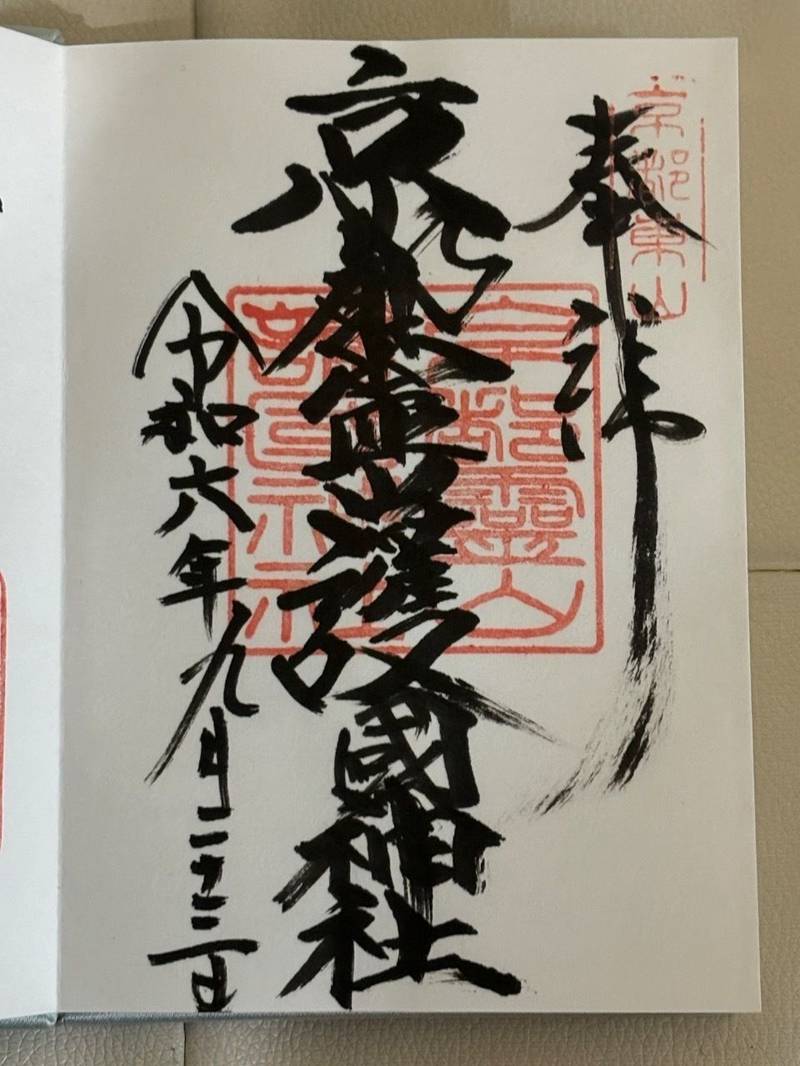 京都東山
奉拝
京都霊山護國神社
京都靈山
護國神社
令和六年九月二十三日